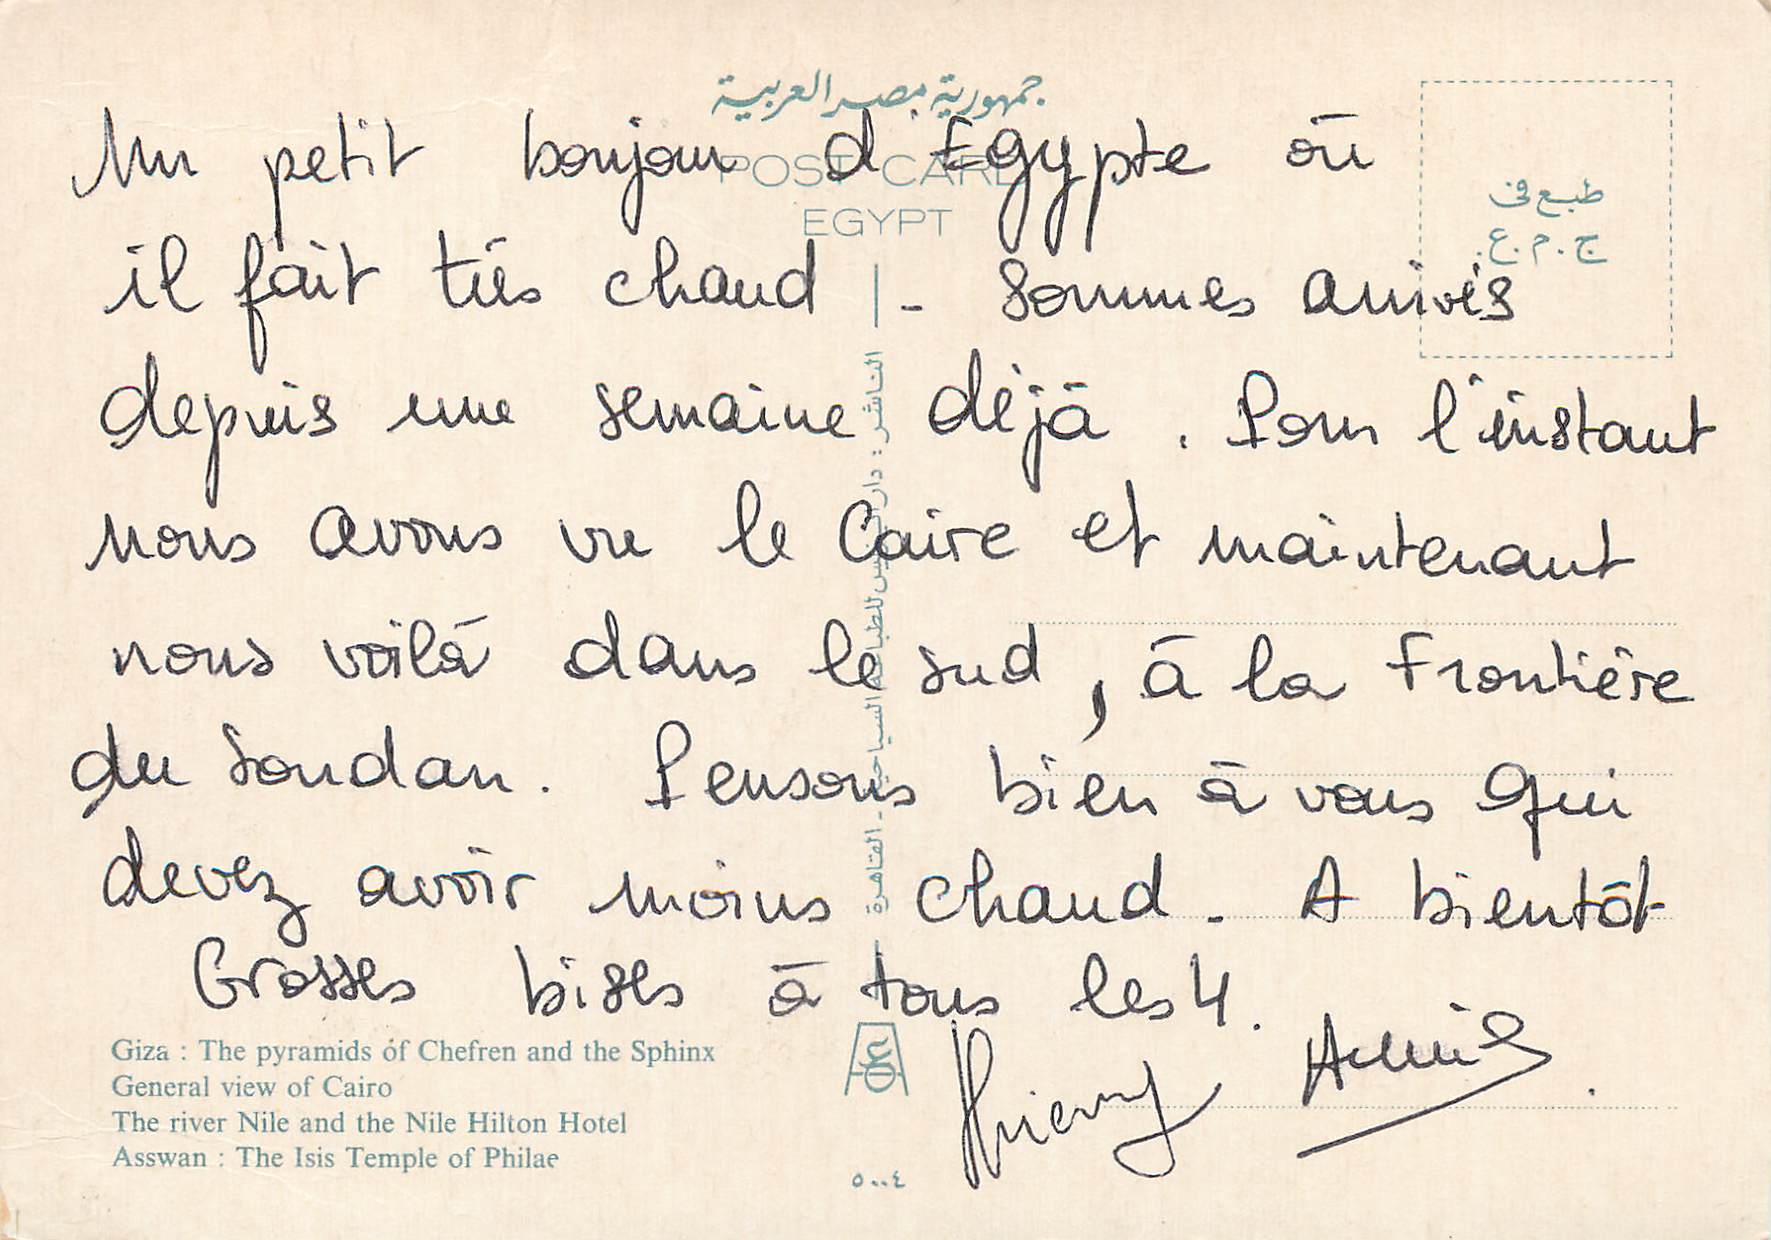 جمهورية مصر العربية
POST CARD
EGYPT
طبع فى
ج.م.ع.
Un petit bonjour d'Egypte où
il fait très chaud - Sommes arrivés
depuis une semaine déjà. Pour l'instant
nous avons vu le Caire et maintenant
nous voilà dans le sud, à la Frontière
du Soudan. Pensons bien à vous qui
devez avoir moins chaud - A bientôt
Grosses bises à tous les 4.
Thierry
الناشر : دار للطباعة السياحية - القاهرة
Giza : The pyramids of Chefren and the Sphinx
General view of Cairo
The river Nile and the Nile Hilton Hotel
Asswan : The Isis Temple of Philae
٥٠٠٤